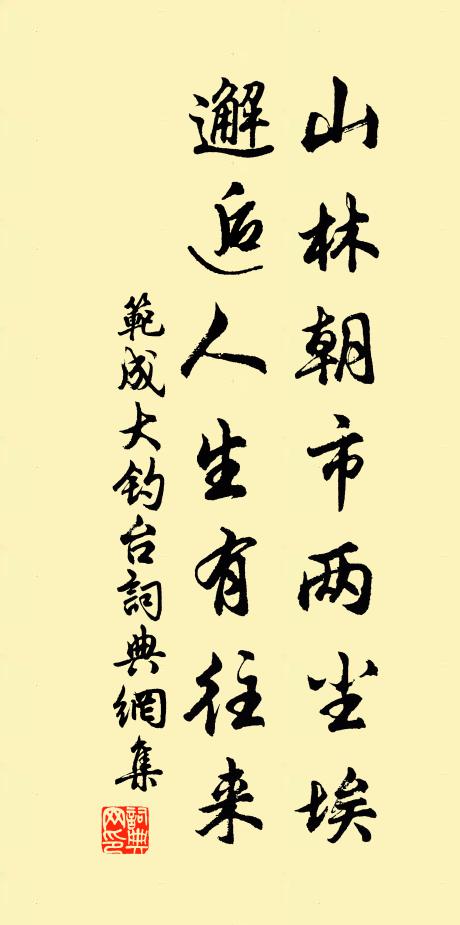 山林朝市两尘埃
邂逅人生有往来
範成大钓台詞典網集
詞典網印